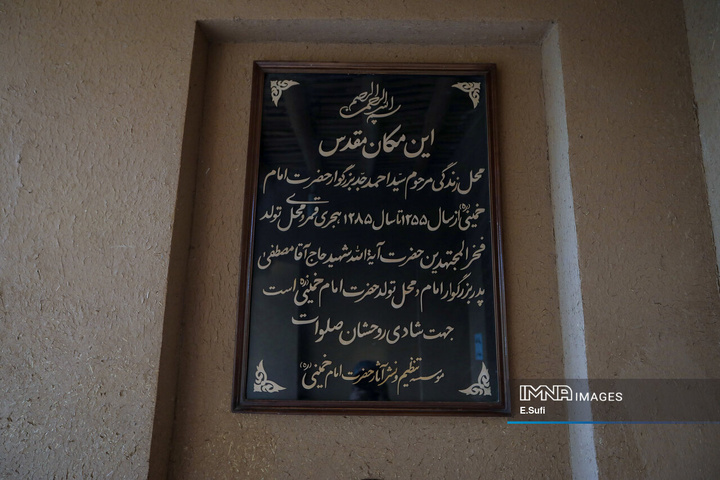 بسم الله الرحمن الرحیم
این مکان مقدس
محل زندگی مرحوم سید احمد جد بزرگوار حضرت امام
خمینی (ره) از سال ۱۲۵۵ تا سال ۱۲۸۵ هجری قمری و محل تولد
فخر المجتهدین حضرت آیة الله شهید حاج آقا مصطفی
پدر بزرگوار امام و محل تولد حضرت امام خمینی (ره) است
جهت شادی روحشان صلوات
موسسه تنظیم و نشر آثار حضرت امام خمینی (ره)
IMNA IMAGES
E.Sufi